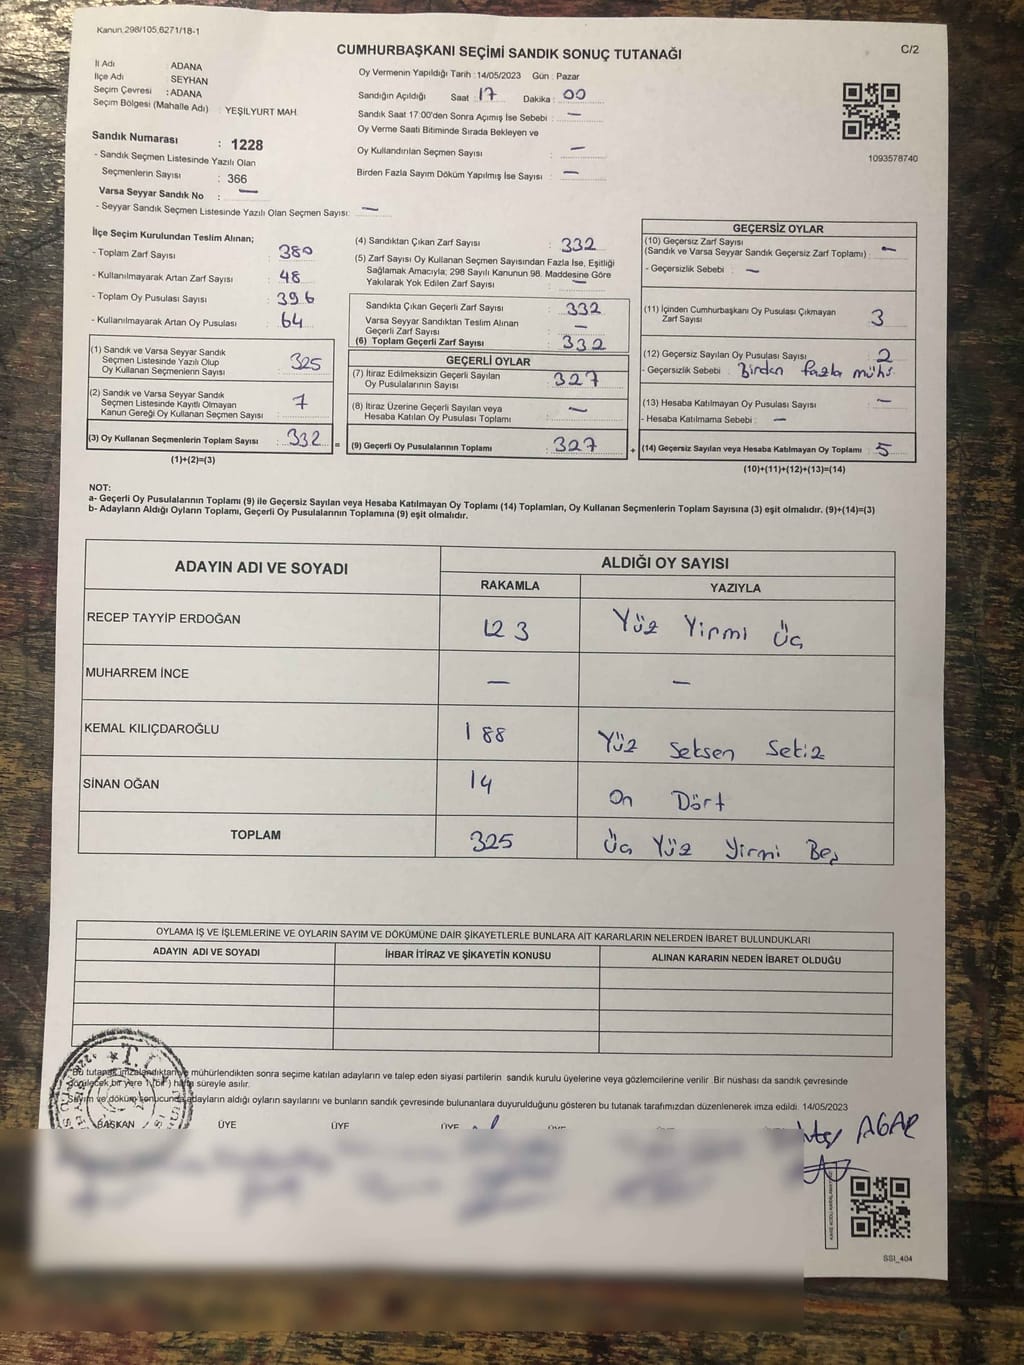 Kanun.298/105,6271/18-1
C/2
CUMHURBAŞKANI SEÇİMİ SANDIK SONUÇ TUTANAĞI
İl Adı : ADANA
İlçe Adı : SEYHAN
Seçim Çevresi : ADANA
Seçim Bölgesi (Mahalle Adı) : YEŞİLYURT MAH.
Sandık Numarası : 1228
- Sandık Seçmen Listesinde Yazılı Olan
Seçmenlerin Sayısı : 366
Varsa Seyyar Sandık No : —
- Seyyar Sandık Seçmen Listesinde Yazılı Olan Seçmen Sayısı: —
Oy Vermenin Yapıldığı Tarih : 14/05/2023 Gün : Pazar
Sandığın Açıldığı Saat : 17 Dakika : 00
Sandık Saat 17:00'den Sonra Açılmış İse Sebebi : —
Oy Verme Saati Bitiminde Sırada Bekleyen ve
Oy Kullandırılan Seçmen Sayısı : —
Birden Fazla Sayım Döküm Yapılmış İse Sayısı : —
1093578740
İlçe Seçim Kurulundan Teslim Alınan;
- Toplam Zarf Sayısı : 380
- Kullanılmayarak Artan Zarf Sayısı : 48
- Toplam Oy Pusulası Sayısı : 396
- Kullanılmayarak Artan Oy Pusulası : 64
(1) Sandık ve Varsa Seyyar Sandık
Seçmen Listesinde Yazılı Olup
Oy Kullanan Seçmenlerin Sayısı : 325
(2) Sandık ve Varsa Seyyar Sandık
Seçmen Listesinde Kayıtlı Olmayan
Kanun Gereği Oy Kullanan Seçmen Sayısı : 7
(3) Oy Kullanan Seçmenlerin Toplam Sayısı : 332 =
(1)+(2)=(3)
(4) Sandıktan Çıkan Zarf Sayısı : 332
(5) Zarf Sayısı Oy Kullanan Seçmen Sayısından Fazla İse, Eşitliği
Sağlamak Amacıyla; 298 Sayılı Kanunun 98. Maddesine Göre
Yakılarak Yok Edilen Zarf Sayısı : —
Sandıkta Çıkan Geçerli Zarf Sayısı : 332
Varsa Seyyar Sandıktan Teslim Alınan
Geçerli Zarf Sayısı : —
(6) Toplam Geçerli Zarf Sayısı : 332
GEÇERLİ OYLAR
(7) İtiraz Edilmeksizin Geçerli Sayılan
Oy Pusulalarının Sayısı : 327
(8) İtiraz Üzerine Geçerli Sayılan veya
Hesaba Katılan Oy Pusulası Toplamı : —
(9) Geçerli Oy Pusulalarının Toplamı : 327 +
GEÇERSİZ OYLAR
(10) Geçersiz Zarf Sayısı
(Sandık ve Varsa Seyyar Sandık Geçersiz Zarf Toplamı) : —
- Geçersizlik Sebebi : —
(11) İçinden Cumhurbaşkanı Oy Pusulası Çıkmayan
Zarf Sayısı : 3
(12) Geçersiz Sayılan Oy Pusulası Sayısı : 2
- Geçersizlik Sebebi : Birden fazla mühr.
(13) Hesaba Katılmayan Oy Pusulası Sayısı : —
- Hesaba Katılmama Sebebi : —
(14) Geçersiz Sayılan veya Hesaba Katılmayan Oy Toplamı : 5
(10)+(11)+(12)+(13)=(14)
NOT:
a- Geçerli Oy Pusulalarının Toplamı (9) ile Geçersiz Sayılan veya Hesaba Katılmayan Oy Toplamı (14) Toplamları, Oy Kullanan Seçmenlerin Toplam Sayısına (3) eşit olmalıdır. (9)+(14)=(3)
b- Adayların Aldığı Oyların Toplamı, Geçerli Oy Pusulalarının Toplamına (9) eşit olmalıdır.
ADAYIN ADI VE SOYADI ALDIĞI OY SAYISI
RAKAMLA YAZIYLA
RECEP TAYYİP ERDOĞAN 123 Yüz Yirmi Üç
MUHARREM İNCE — —
KEMAL KILIÇDAROĞLU 188 Yüz Seksen Sekiz
SİNAN OĞAN 14 On Dört
TOPLAM 325 Üç Yüz Yirmi Beş
OYLAMA İŞ VE İŞLEMLERİNE VE OYLARIN SAYIM VE DÖKÜMÜNE DAİR ŞİKAYETLERLE BUNLARA AİT KARARLARIN NELERDEN İBARET BULUNDUKLARI
ADAYIN ADI VE SOYADI İHBAR İTİRAZ VE ŞİKAYETİN KONUSU ALINAN KARARIN NEDEN İBARET OLDUĞU
Bu tutanak imzalandıktan ve mühürlendikten sonra seçime katılan adayların ve talep eden siyasi partilerin sandık kurulu üyelerine veya gözlemcilerine verilir. Bir nüshası da sandık çevresinde
görülecek bir yere 1 (bir) hafta süreyle asılır.
Sayım ve döküm sonucunda adayların aldığı oyların sayılarını ve bunların sandık çevresinde bulunanlara duyurulduğunu gösteren bu tutanak tarafımızdan düzenlenerek imza edildi. 14/05/2023
T.C.
BAŞKAN ÜYE ÜYE ÜYE
AGAR
SSI_404